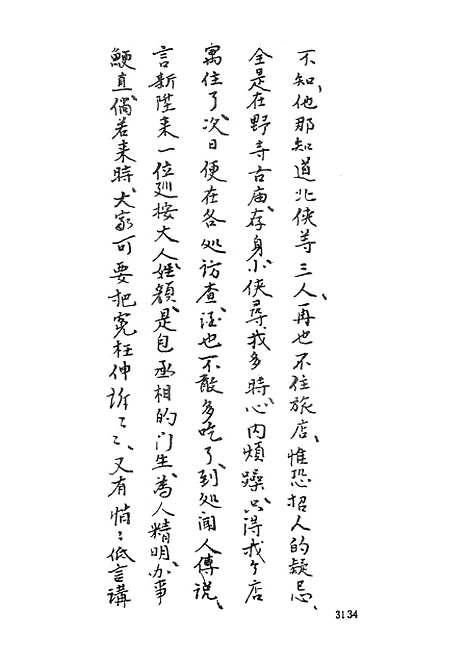 不知、他那知道北俠等三人、再也不住旅店、惟恐招人的疑忌、
全是在野寺古庙、存身、小俠尋我多時、心内煩躁、只得我个店
寓住了、次日便在各处访查、酒也不敢多吃了、到处闻人傳说、
言新陞来一位廵按大人、姓顏、是包丞相的门生、為人精明、办事
鯁直、倘若来時、大家可要把冤枉伸訴〻〻、又有悄〻低言講
3134